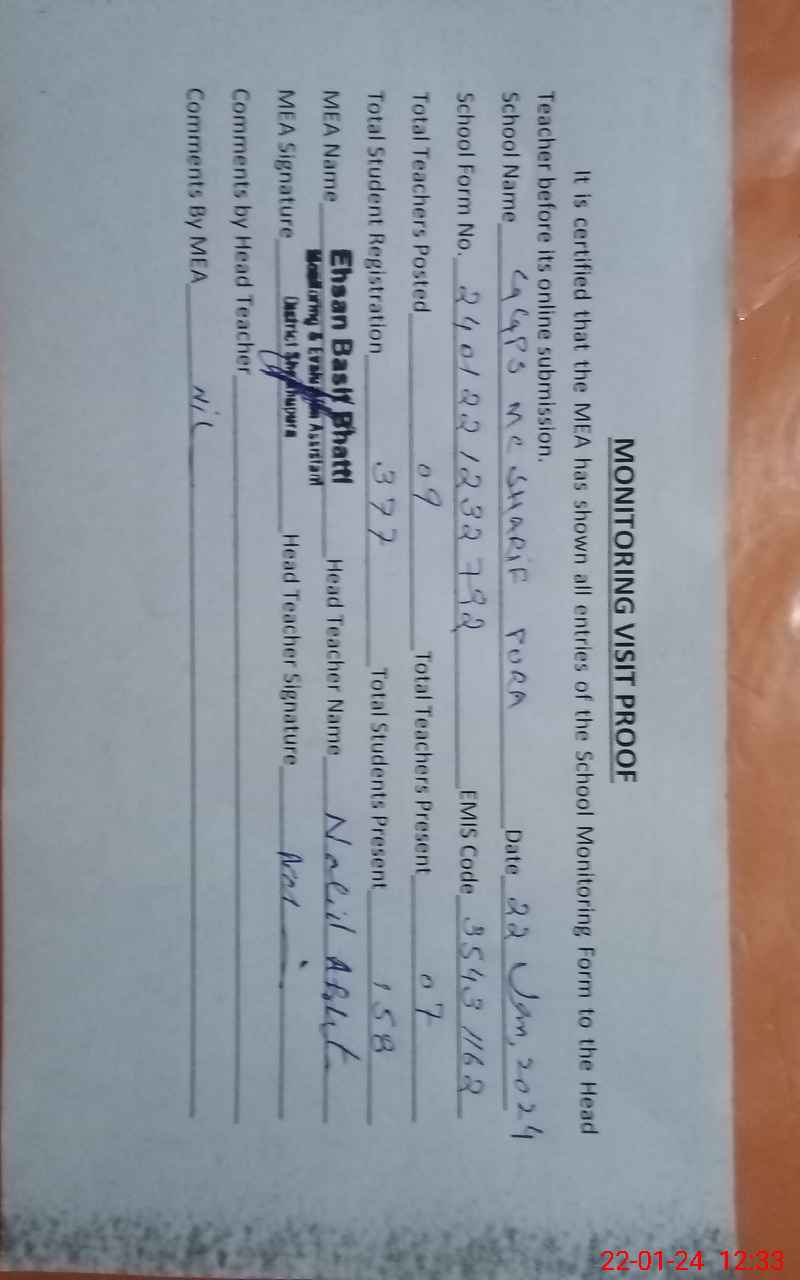 MONITORING VISIT PROOF
It is certified that the MEA has shown all entries of the School Monitoring Form to the Head
Teacher before its online submission.
School Name GGPS MC SHARIF PORA Date 22 Jan, 2024
School Form No. 2401221232792 EMIS Code 35431162
Total Teachers Posted 09 Total Teachers Present 07
Total Student Registration 377 Total Students Present 158
MEA Name Ehsan Basit Bhatti Head Teacher Name
Monitoring & Evaluation Assistant
MEA Signature District Sheikhupura Head Teacher Signature
Comments by Head Teacher
Comments By MEA Nil
22-01-24 12:33